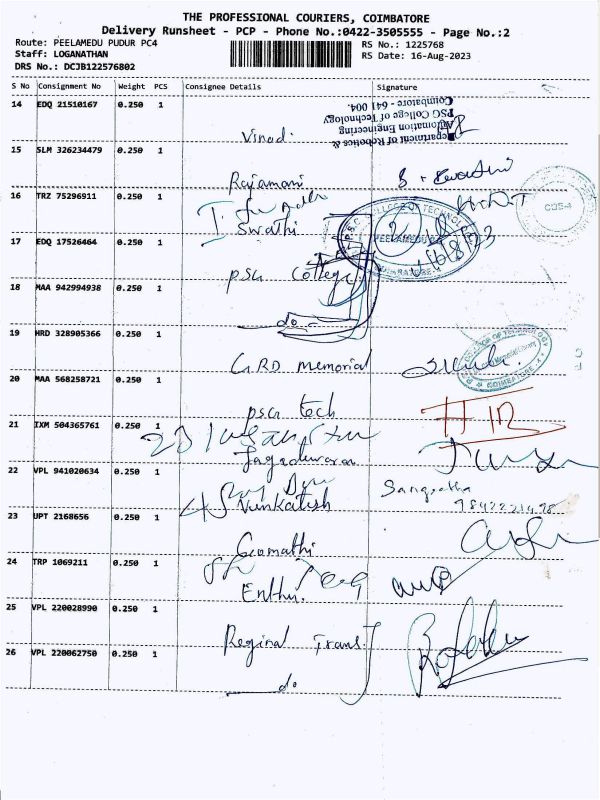 THE PROFESSIONAL COURIERS, COIMBATORE
Delivery Runsheet - PCP - Phone No.:0422-3505555 - Page No.:2
Route: PEELAMEDU PUDUR PC4
RS No.: 1225768
Staff: LOGANATHAN
RS Date: 16-Aug-2023
DRS No.: DCJB122576802
S No Consignment No Weight PCS Consignee Details Signature
14 EDQ 21510167 0.250 1
Department of Robotics &
Automation Engineering
PSG College of Technology
Coimbatore - 641 004.
Vinodi
15 SLM 326234479 0.250 1
Rajamani
16 TRZ 75296911 0.250 1
Swathi
17 EDQ 17526464 0.250 1
PEELAMEDU
16/8/23
psg College
18 MAA 942994938 0.250 1
do
19 HRD 328905366 0.250 1
GRD memorial
COIMBATORE
20 MAA 568258721 0.250 1
psg tech
21 IXM 504365761 0.250 1
Jagadeesan
22 VPL 941020634 0.250 1
Sangeetha
Venkatesh
23 UPT 2168656 0.250 1
Gomathi
24 TRP 1069211 0.250 1
Enthu.
25 VPL 220028990 0.250 1
Reginal Trans
26 VPL 220062750 0.250 1
do